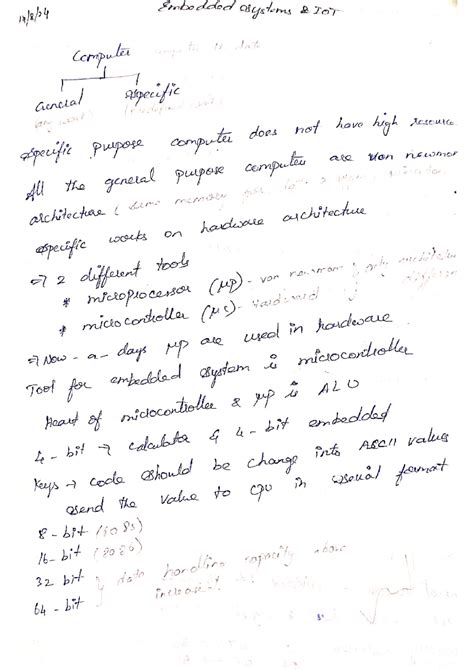 14/8/24
Embedded Systems & IoT
Computer
General Specific
Specific purpose computer does not have high resource
All the general purpose computer are Von newman
architecture (same memory for
Specific works on hardware architecture
→ 2 different tools
* microprocessor (μp) - von newman } only architecture
* microcontroller (μc) - Hardward } different
→ Now-a-days μp are used in hardware
Tool for embedded System is microcontroller
Heart of microcontroller & μp is ALU
4-bit → calculator is 4-bit embedded
Keys → code should be change into ASCII values
send the value to cpu in serial format
8-bit (8085)
16-bit (8086)
32 bit } data handling capacity above
64-bit } increase